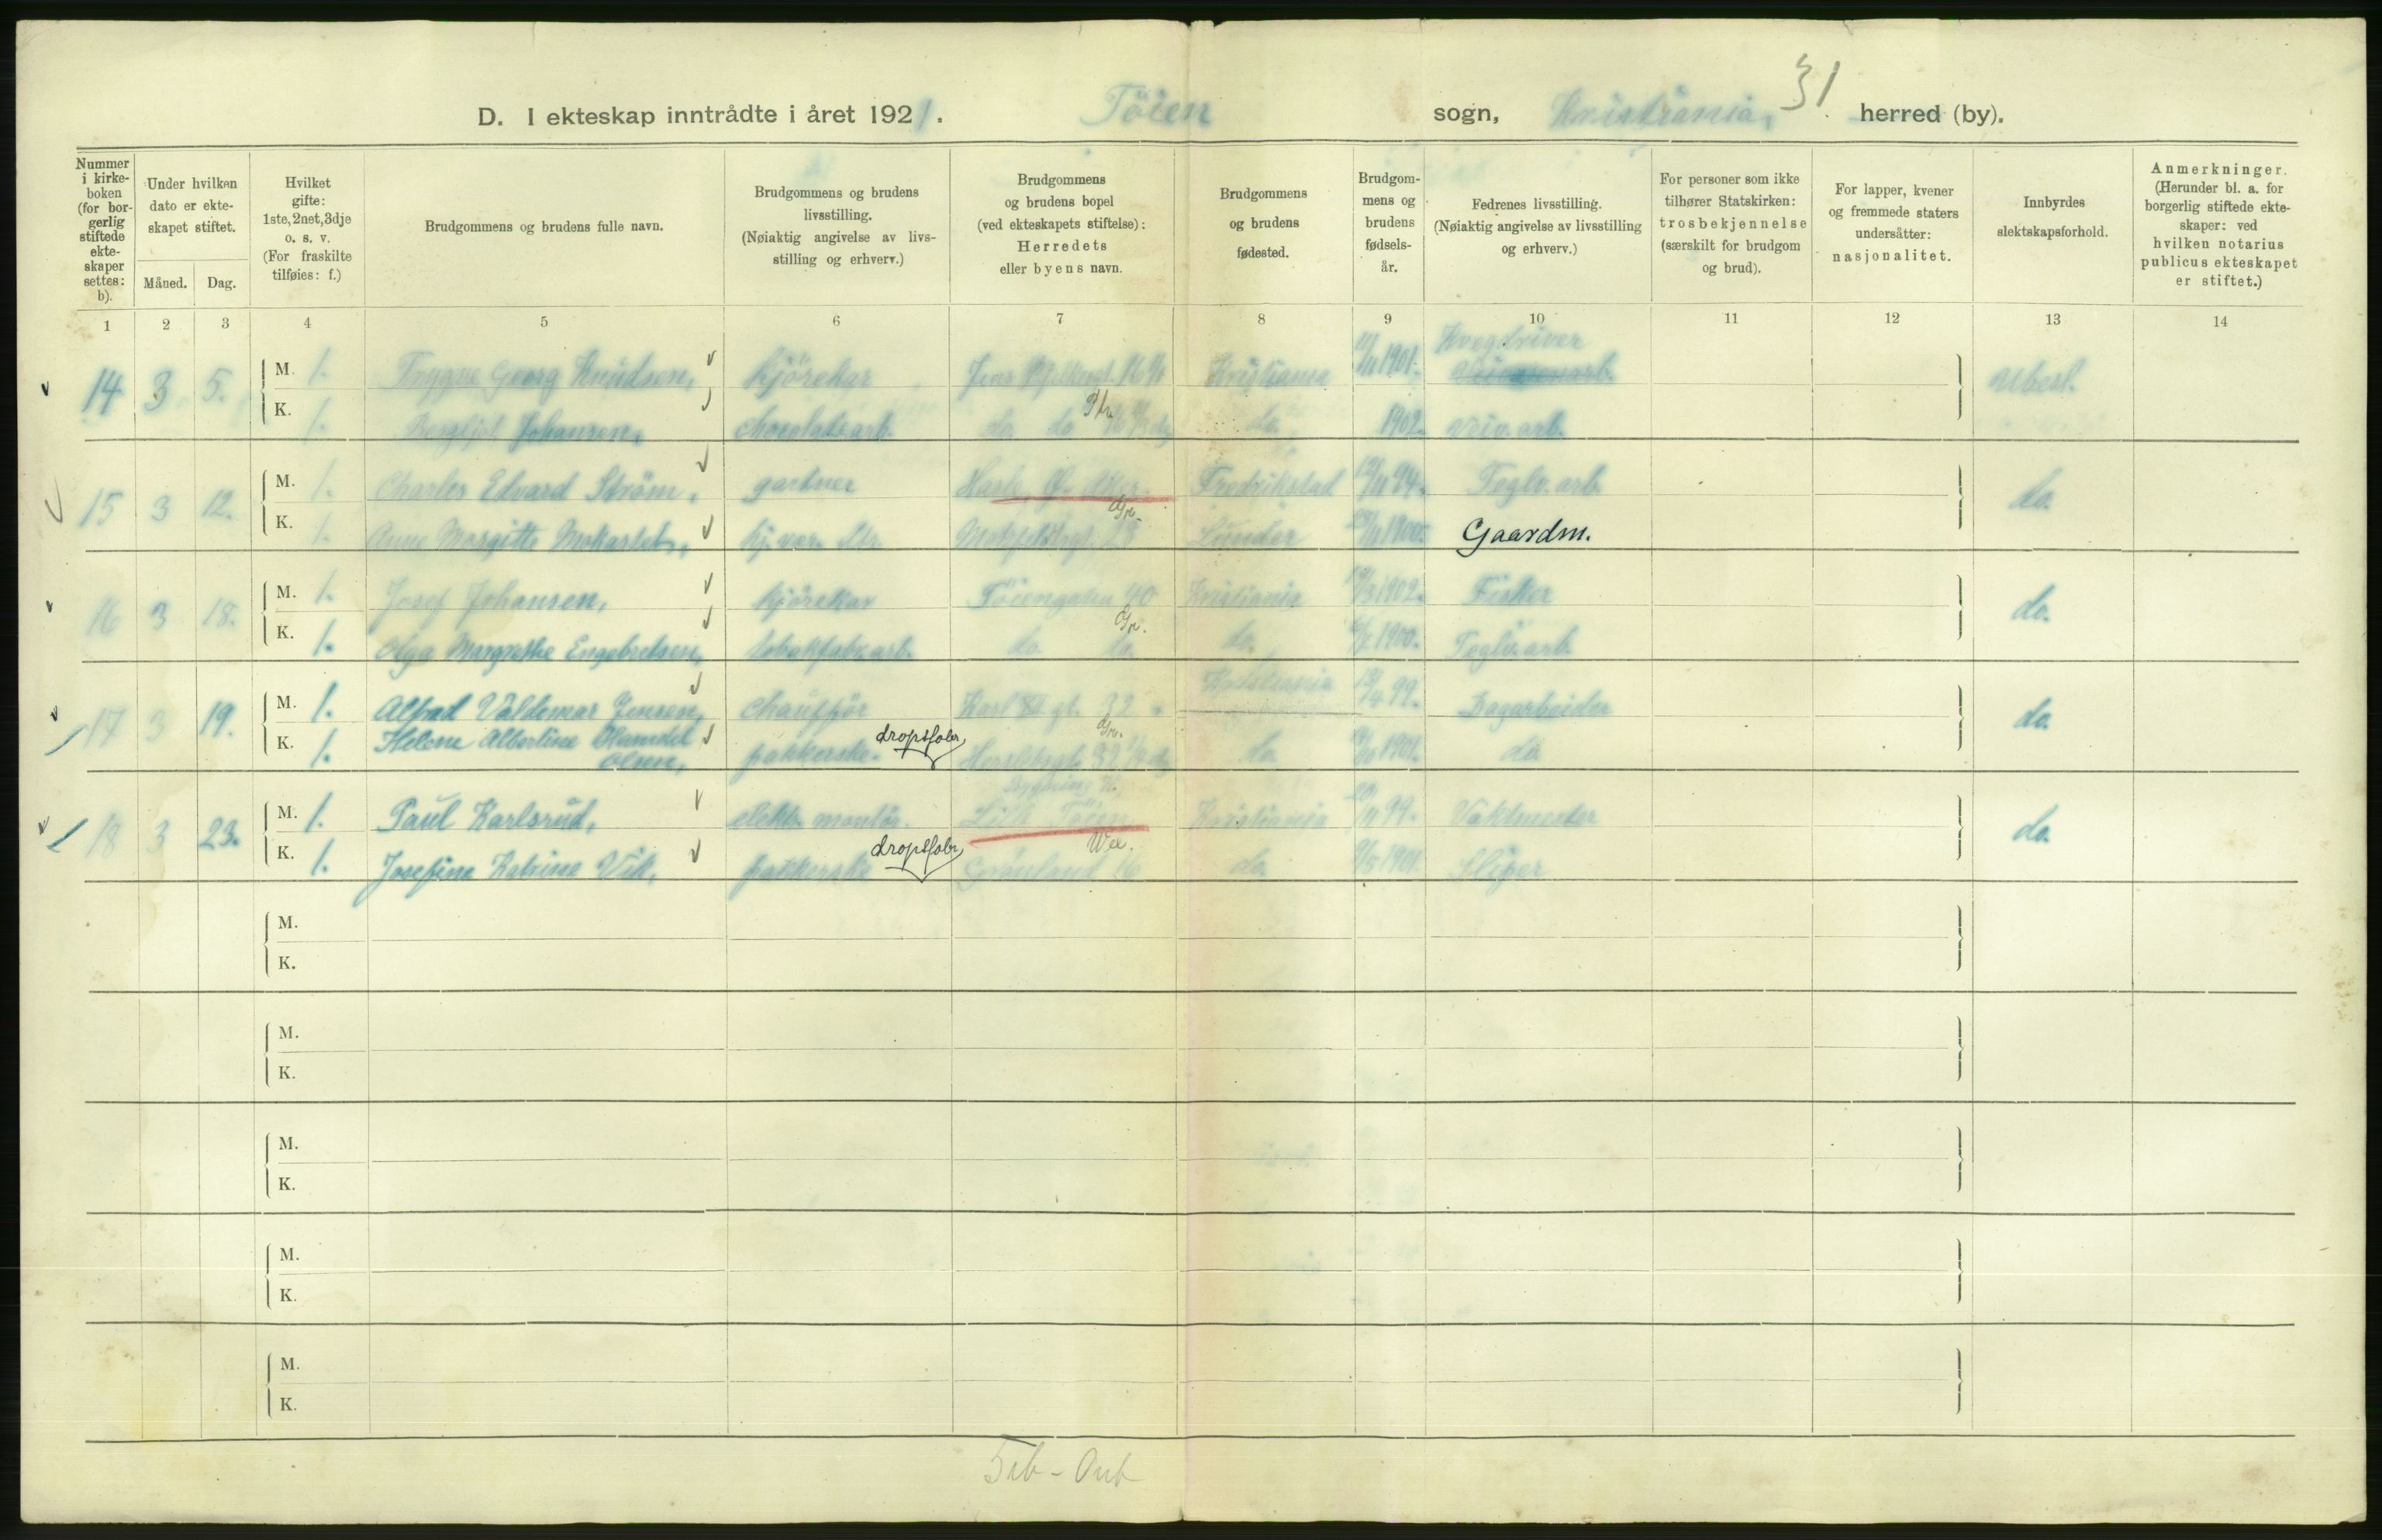 31
D. I ekteskap inntrådte i året 1921. Töien sogn, Kristiania, herred (by).
Nummer i kirke-boken (for bor-gerlig stiftede ekte-skaper settes: b).
Under hvilken dato er ekte-skapet stiftet.
Måned. Dag.
Hvilket gifte: 1ste, 2net, 3dje o. s. v. (For fraskilte tilføies: f.)
Brudgommens og brudens fulle navn.
Brudgommens og brudens livsstilling. (Nøiaktig angivelse av livs-stilling og erhverv.)
Brudgommens og brudens bopel (ved ekteskapets stiftelse): Herredets eller byens navn.
Brudgommens og brudens fødested.
Brudgom-mens og brudens fødsels-år.
Fedrenes livsstilling. (Nøiaktig angivelse av livsstilling og erhverv.)
For personer som ikke tilhører Statskirken: trosbekjennelse (særskilt for brudgom og brud).
For lapper, kvener og fremmede staters undersåtter: nasjonalitet.
Innbyrdes slektskapsforhold.
Anmerkninger. (Herunder bl. a. for borgerlig stiftede ekte-skaper: ved hvilken notarius publicus ekteskapet er stiftet.)
1 2 3 4 5 6 7 8 9 10 11 12 13 14
Kvegdriver
14 3 5. M. 1. Trygve Georg Knudsen, kjörekar Kristiania 1901. Ubesl.
K. 1. Bergljot Johansen, chocoladearb. do. do. do. 1902. Veiv. arb.
15 3 12. M. 1. Charles Edvard Ström, gartner Fredrikstad 94. Teglv. arb. do.
K. 1. Anna Margitte 1900. Gaardm.
16 3 18. M. 1. Josef Johansen, kjörekar Töiengaten 40 Kristiania 1902. Fisker do.
K. 1. Olga Margrethe Engebretsen, tobakfabr. arb. do. do. do. 1900. Teglv. arb.
17 3 19. M. 1. Alfred Valdemar Jensen, chaufför Karl XII gt. 32 Kristiania 99. Dagarbeider do.
K. 1. Helene Albertine Olsen, pakkerske. dropsfabr. do. 1901. do.
18 3 23. M. 1. Paul Karlsrud, elektr. montör. Lille Töien Kristiania 99. Vaktmester do.
K. 1. Josefine Katrine Vik, pakkerske dropsfabr. Grönland 16 do. 1901. Sliper
M.
K.
M.
K.
M.
K.
M.
K.
M.
K.